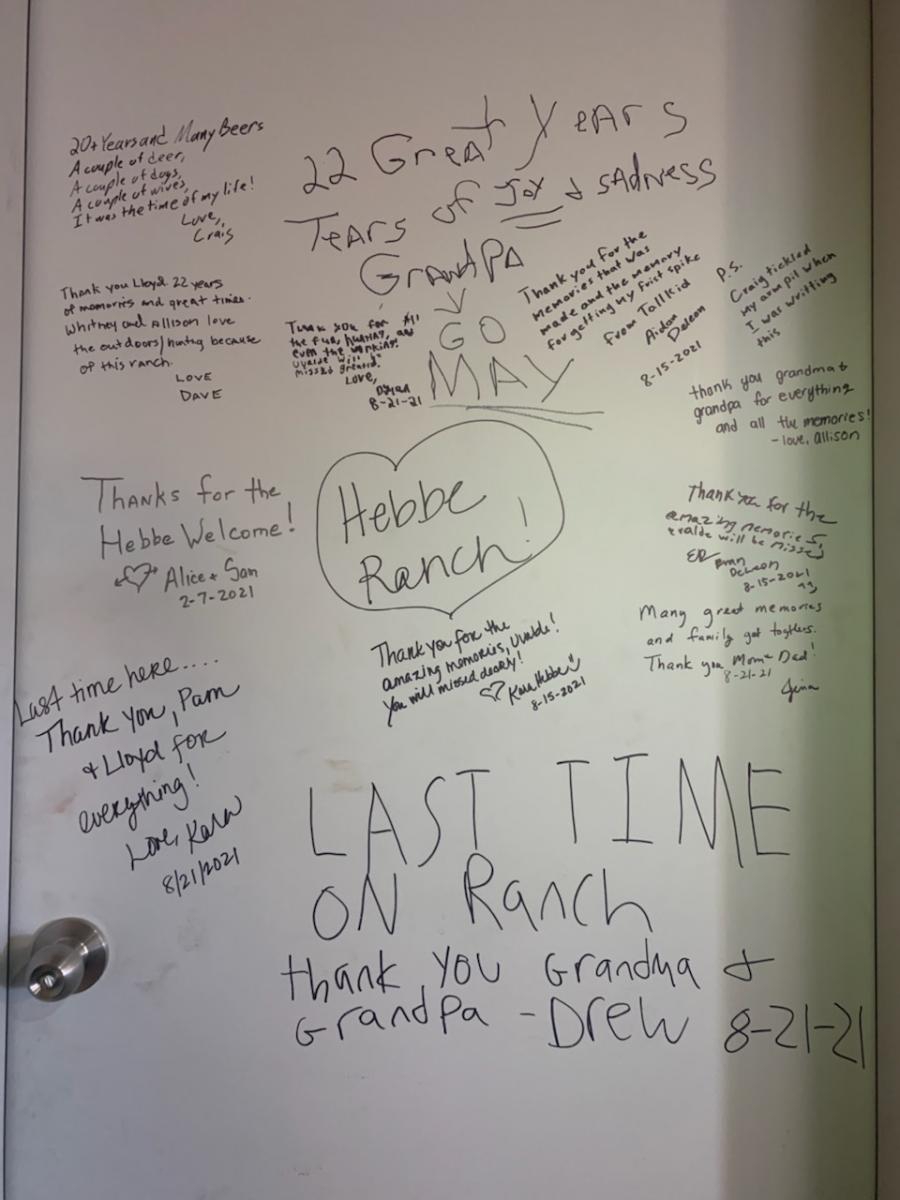 20+ Years and Many Beers
A couple of deer,
A couple of dogs,
A couple of wives,
It was the time of my life!
Love,
Craig
22 Great Years
Tears of Joy & Sadness
Grandpa
GO
MAY
Thank you Lloyd 22 years
of memories and great times.
Whitney and Allison love
the outdoors/hunting because
of this ranch.
LOVE
DAVE
Thank you for All
the fun, hunting, and
even the working!
Uvalde will be
missed greatly!
Love,
8-21-21
Thank you for the
memories that was
made and the memory
for getting my first spike
From Tallkid
Aidan
Deleon
8-15-2021
P.S.
Craig tickled
my arm pit when
I was writting
this
thank you grandma &
grandpa for everything
and all the memories!
- love, allison
Thanks for the
Hebbe Welcome!
Alice + Sam
2-7-2021
Hebbe
Ranch!
Thank you for the
amazing memories,
uvalde will be missed
DeLeon
8-15-2021
Many great memories
and family get togthers.
Thank you Mom & Dad!
8-21-21
Gina
Thank you for the
amazing memories, Uvalde!
You will missed dearly!
Kara Hebbe
8-15-2021
Last time here....
Thank you, Pam
+ Lloyd for
everything!
Love, Kara
8/21/2021
LAST TIME
ON Ranch
thank you Grandma &
Grandpa - Drew 8-21-21